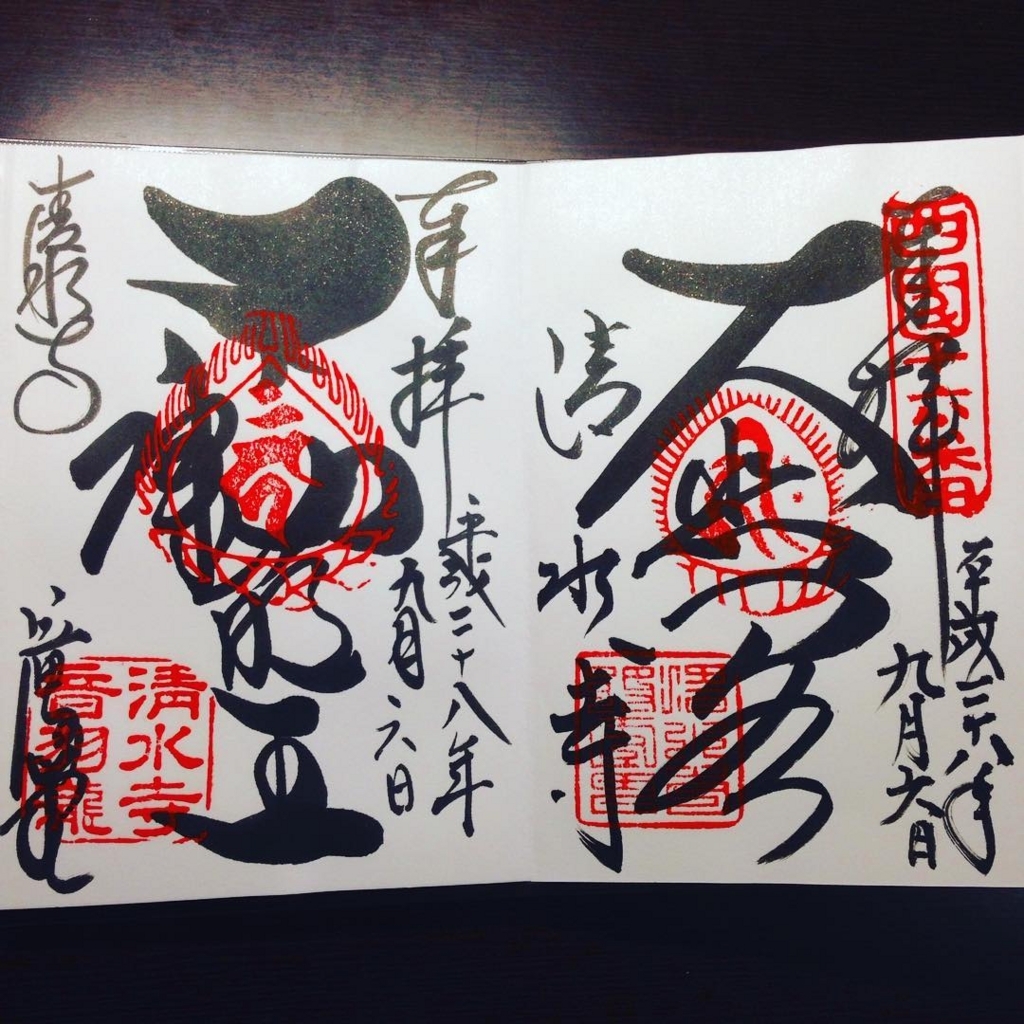 奉拝
西國十六番
平成二十八年
九月六日
大悲閣
清水寺
奉拝
平成二十八年
九月六日
龍王
清水寺
清水寺
音羽瀧